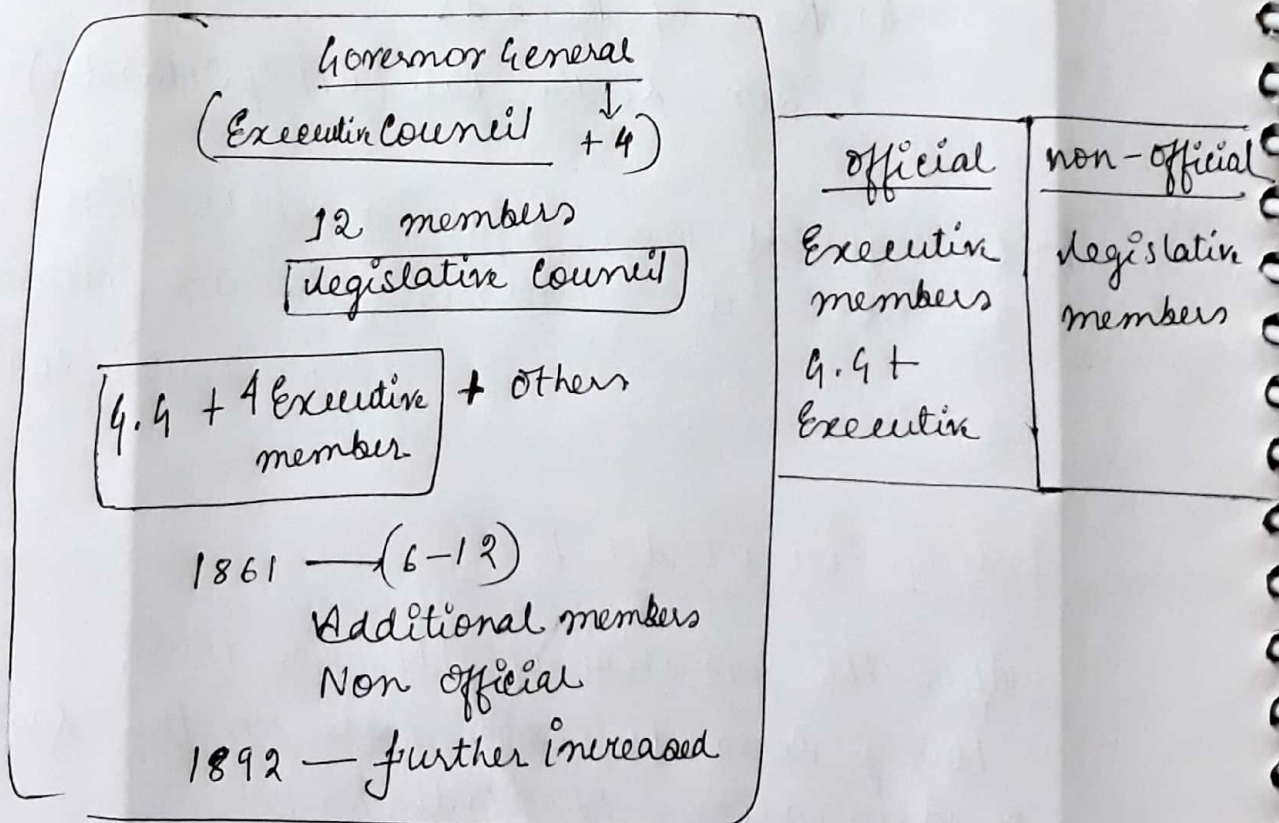 Governor General
↓
(Executive Council + 4)
12 members
Legislative Council
G.G + 4 Executive + others
member
1861 → (6-12)
Additional members
Non official
1892 — further increased
official
Executive
members
G.G +
Executive
non-official
Legislative
members